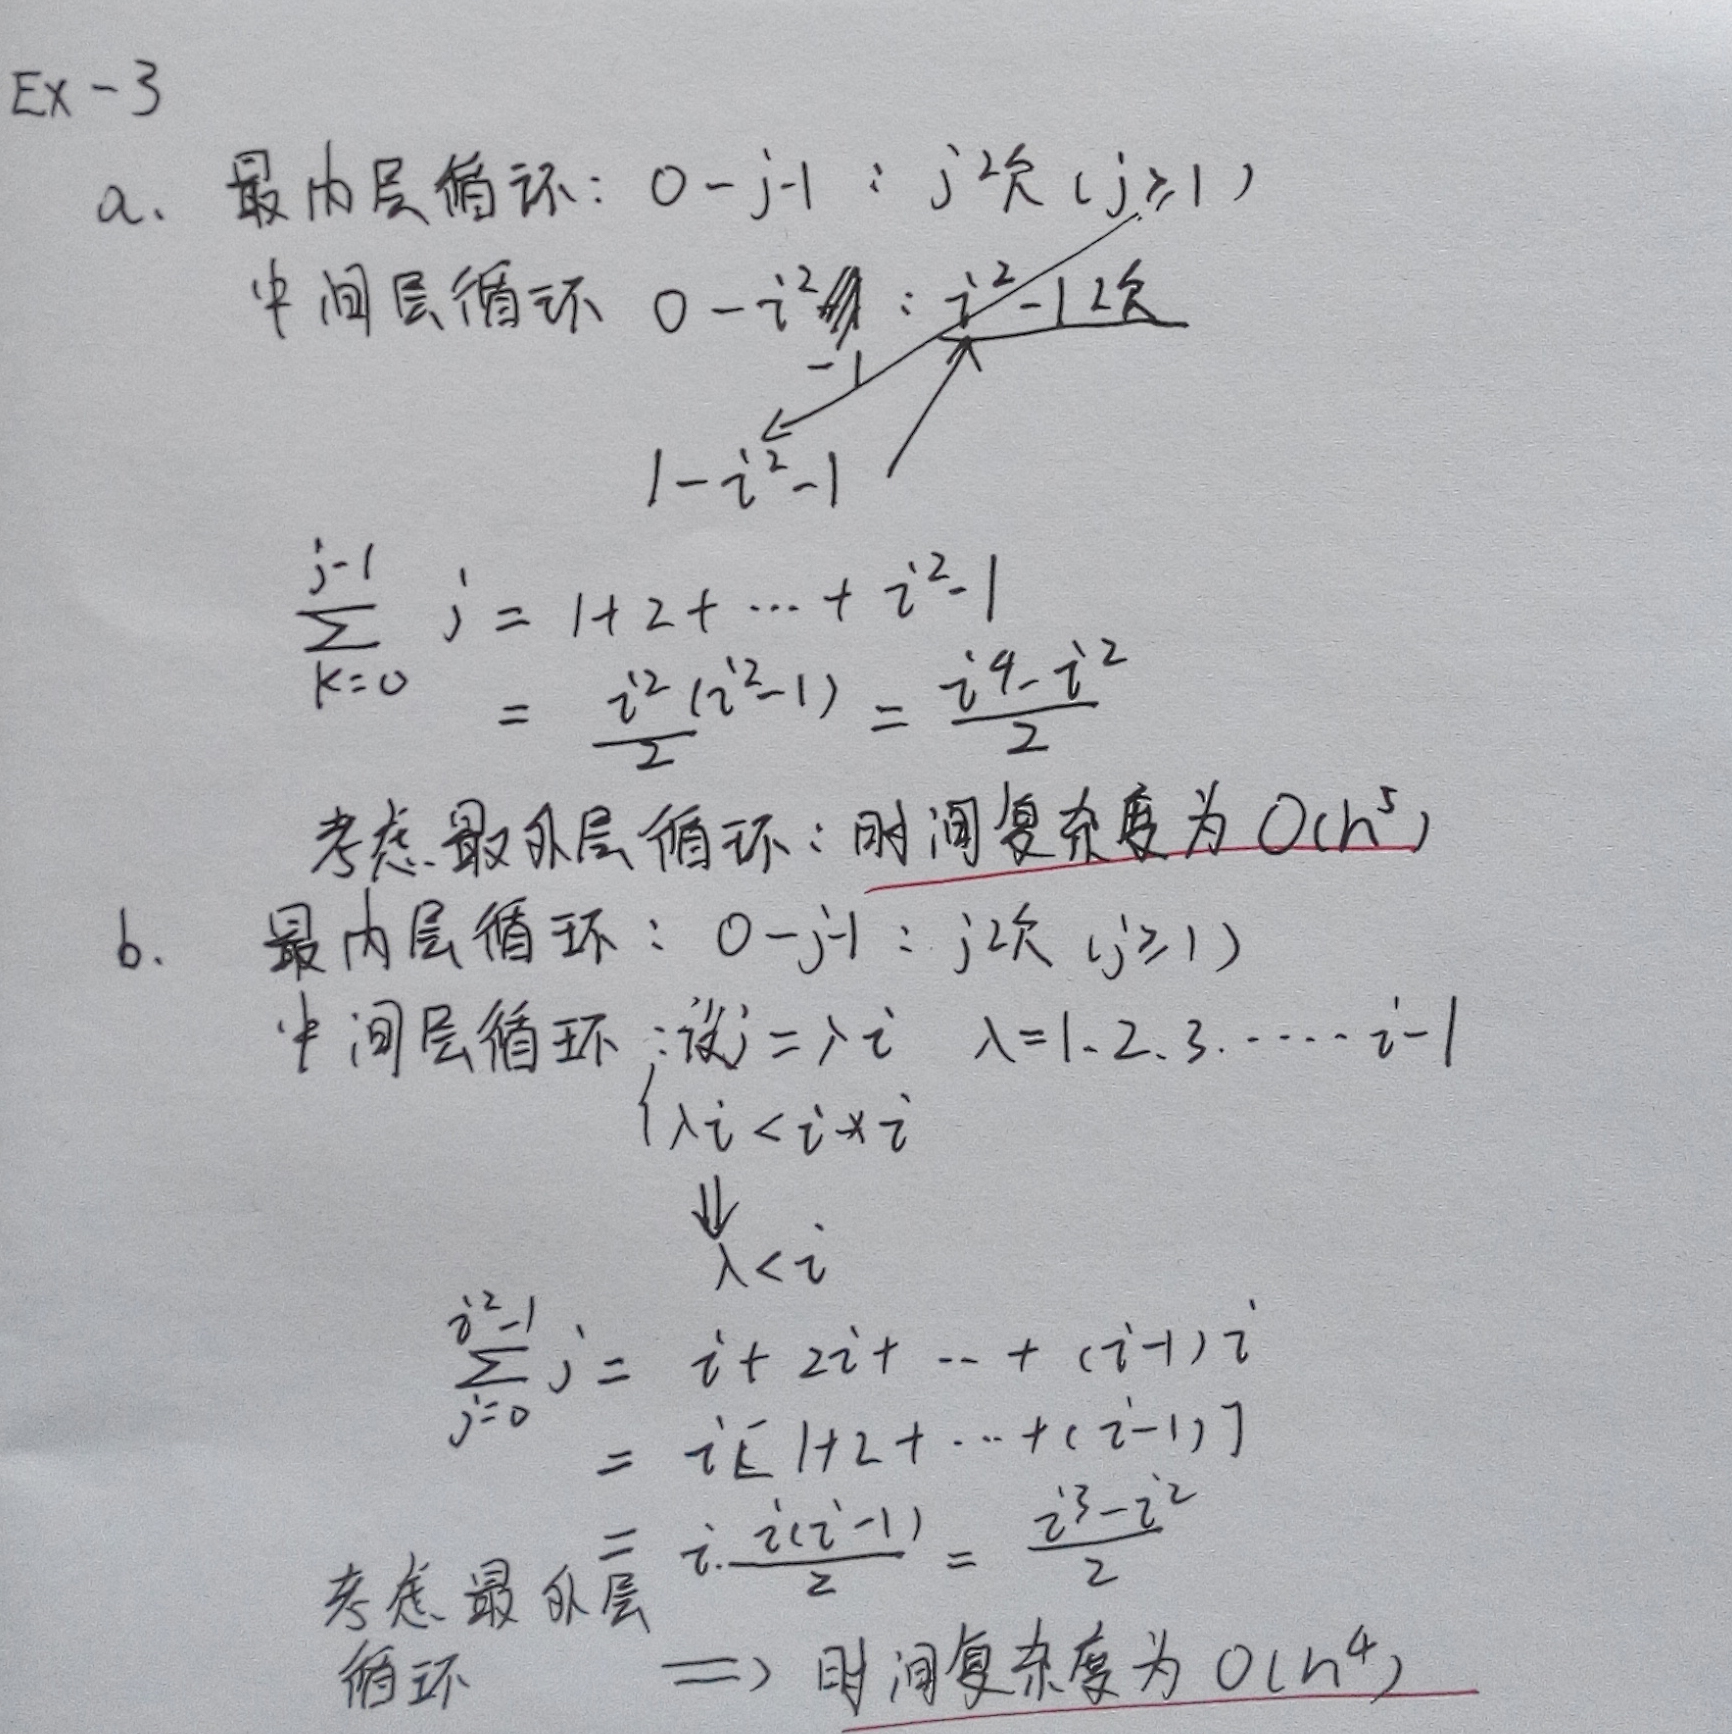 Ex-3
a. 最内层循环: 0-j-1 : j次 (j≥1)
中间层循环 0-i² : i²-1次
-1
1-i²-1
j-1
∑ j = 1+2+…+i²-1
k=0
= i²/2 (i²-1) = (i⁴-i²)/2
考虑最外层循环: 时间复杂度为 O(n⁵)
b. 最内层循环: 0-j-1 : j次 (j≥1)
中间层循环: 设j=λi λ=1、2、3.·····i-1
{λi<i*i
⇓
λ<i
i²-1
∑ j = i+2i+··+(i-1)i
j=0
= i[1+2+···+(i-1)]
= i·i(i-1)/2 = (i³-i²)/2
考虑最外层
循环 => 时间复杂度为 O(n⁴)